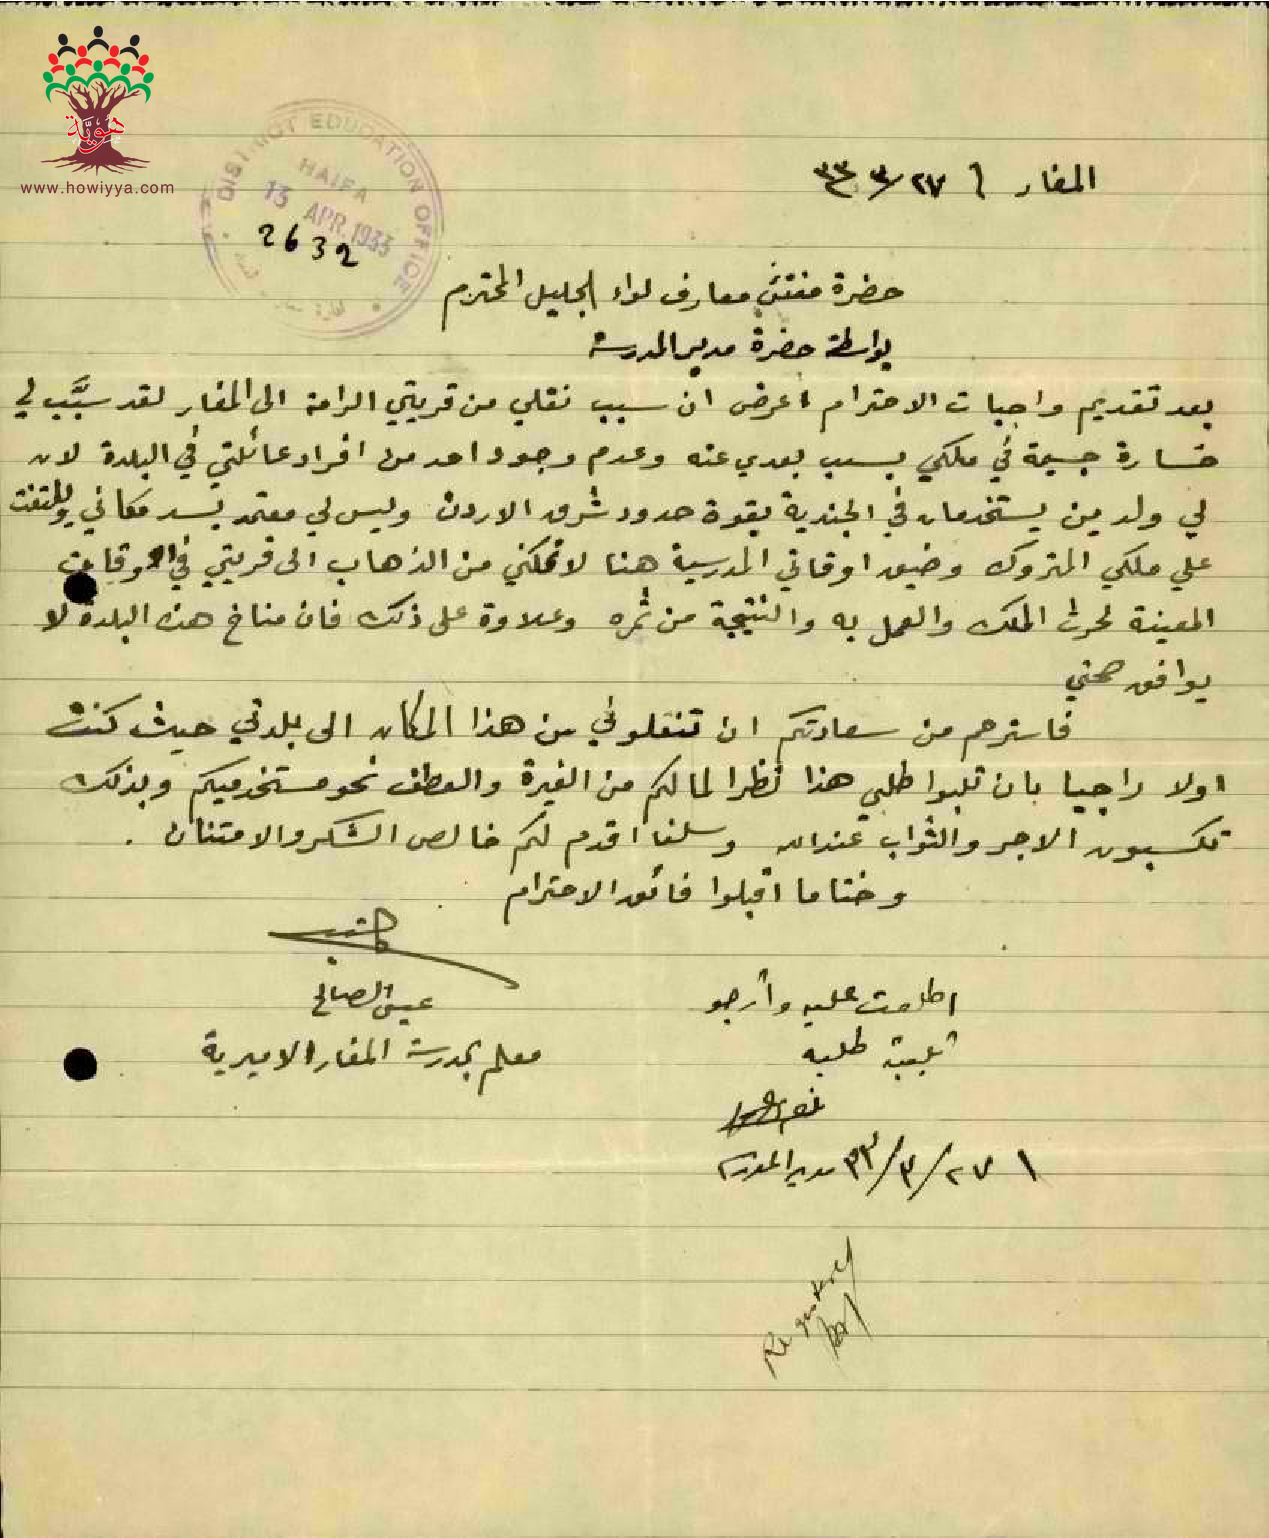 هوية
www.howiyya.com
DISTRICT EDUCATION OFFICE
HAIFA
13 APR. 1933
2632
المغار في ٢٧/٣/٣٣
حضرة مفتش معارف لواء الجليل المحترم
بواسطة حضرة مدير المدرسة
بعد تقديم واجبات الاحترام اعرض ان سبب نقلي من قريتي الرامة الى المغار لقد سبَّب لي
خسارة جسيمة في ملكي بسبب بعدي عنه وعدم وجود احد من افراد عائلتي في البلدة لان
لي ولدين يستخدمان في الجندية بقوة حدود شرق الاردن وليس لي معتمد يسد مكاني ويلتفت
على ملكي المتروك وضيق اوقاتي المدرسية هنا لا تمكني من الذهاب الى قريتي في الاوقات
المعينة لحرث الملك والعمل به والنتيجة من ثمره وعلاوة على ذلك فان مناخ هذه البلدة لا
يوافق صحتي
فاسترحم من سعادتكم ان تنقلوني من هذا المكان الى بلدتي حيث كنت
اولا راجيا بان تلبوا طلبي هذا نظرا لما لكم من الغيرة والعطف نحو مستخدميكم وبذلك
تكسبون الاجر والثواب عند الله وسلفا اقدم لكم خالص الشكر والامتنان .
وختاما اقبلوا فائق الاحترام
كاتبه
عيسى الصالح
معلم بمدرسة المغار الاميرية
اطلعت عليه وأرجو
تلبية طلبه
٢٧/٣/٣٣ مدير المدرسة
Registered